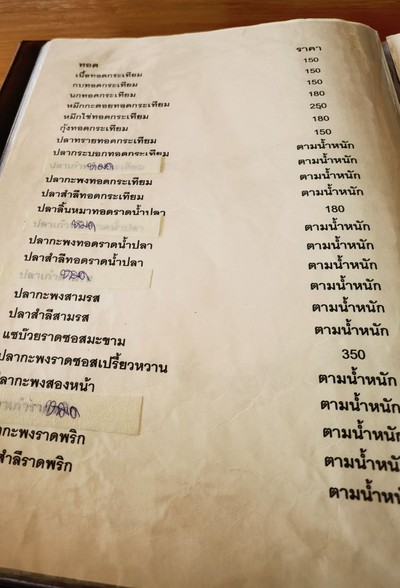 ทอด ราคา
เนื้อทอดกระเทียม 150
กบทอดกระเทียม 150
นกทอดกระเทียม 150
หมึกกะตอยทอดกระเทียม 180
หมึกไข่ทอดกระเทียม 250
กุ้งทอดกระเทียม 180
ปลาทรายทอดกระเทียม 150
ปลากระบอกทอดกระเทียม ตามน้ำหนัก
ปลาเก๋า ตามน้ำหนัก
ปลากะพงทอดกระเทียม ตามน้ำหนัก
ปลาสำลีทอดกระเทียม ตามน้ำหนัก
ปลาลิ้นหมาทอดราดน้ำปลา 180
ปลาเก๋า ตามน้ำหนัก
ปลากะพงทอดราดน้ำปลา ตามน้ำหนัก
ปลาสำลีทอดราดน้ำปลา ตามน้ำหนัก
ปลาเก๋า ตามน้ำหนัก
ปลากะพงสามรส ตามน้ำหนัก
ปลาสำลีสามรส ตามน้ำหนัก
แซบ๊วยราดซอสมะขาม 350
ปลากะพงราดซอสเปรี้ยวหวาน ตามน้ำหนัก
ปลากะพงสองหน้า ตามน้ำหนัก
ลาเก๋ารา ตามน้ำหนัก
ากะพงราดพริก ตามน้ำหนั
สำลีราดพริก ตามน้ำหนั